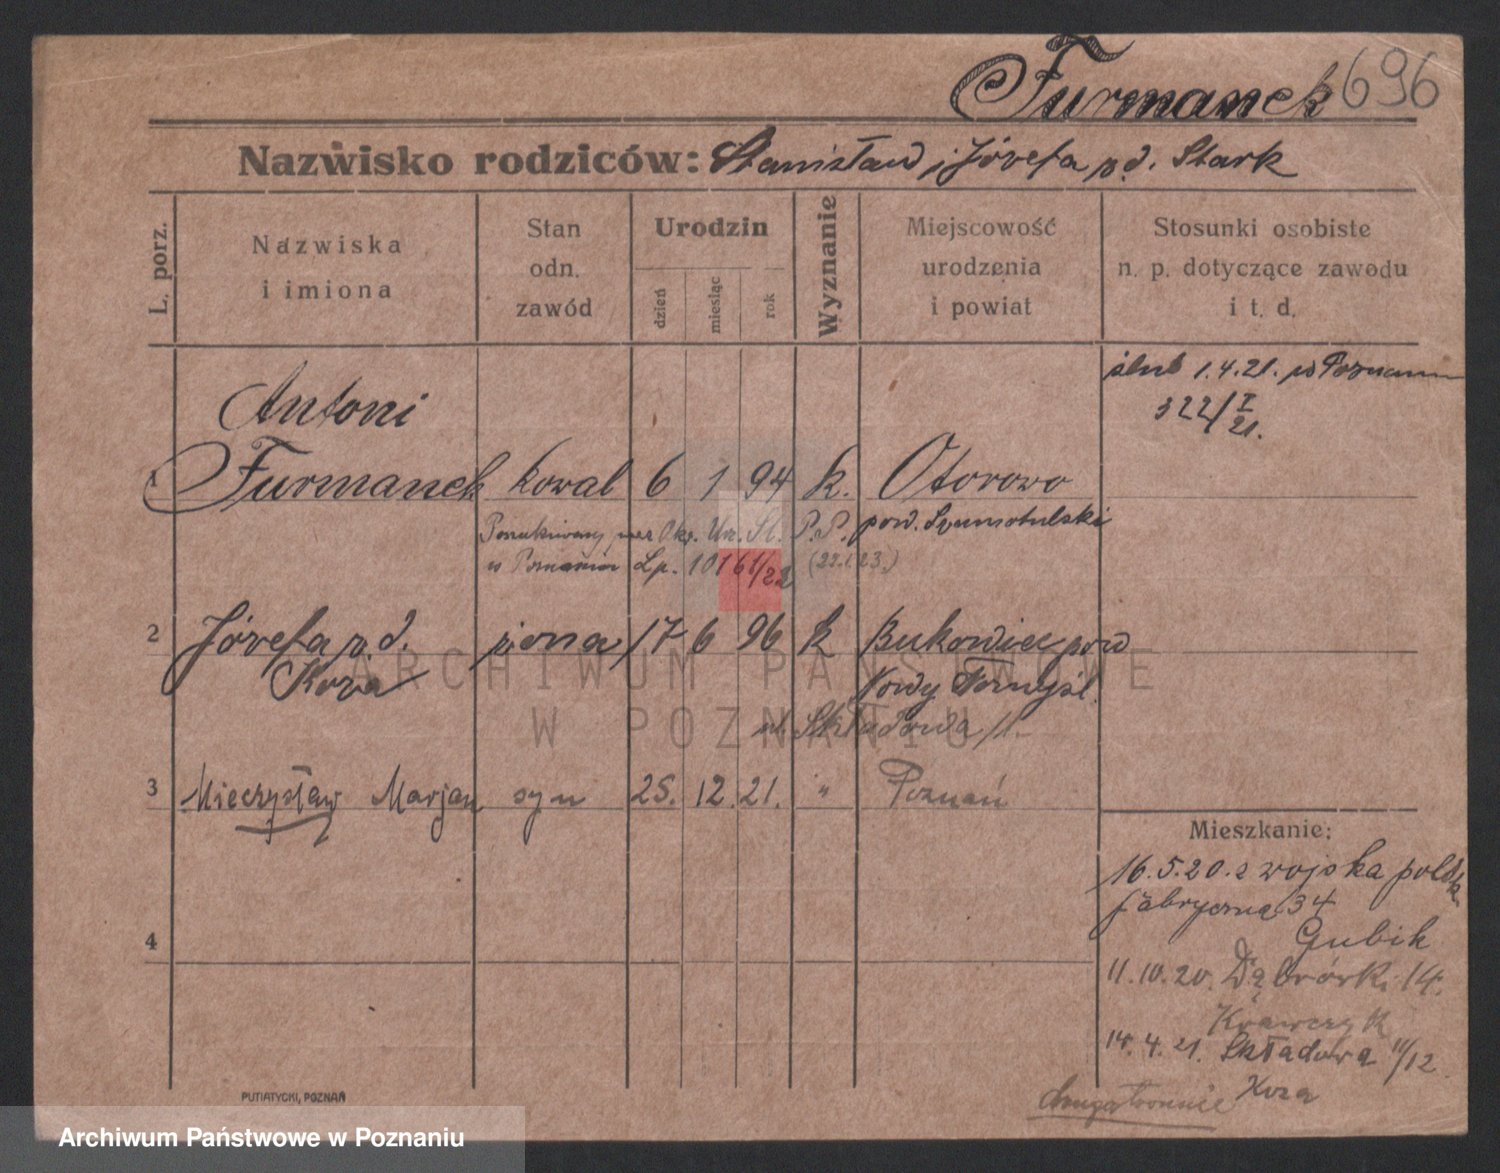 Furmanek 696
Nazwisko rodziców: Stanisław i Józefa z d. Stark
L. porz.
Nazwiska
i imiona
Stan
odn.
zawód
Urodzin
dzień
miesiąc
rok
Wyznanie
Miejscowość
urodzenia
i powiat
Stosunki osobiste
n. p. dotyczące zawodu
i t. d.
ślub 1.4.21. w Poznaniu
322/I
21.
Antoni
1 Furmanek kowal 6 1 94 k. Otorowo
Poszukiwany przez Okr. Urz. Śl. P.P. pow. Szamotulski
w Poznaniu Lp. 10161/22 (22.1.23.)
2 Józefa z d. żona 17 6 96 k Bukowiec pow
Koza Nowy Tomyśl
ul. Składowa 11.
3 Mieczysław Marjan syn 25. 12. 21. " Poznań
4
Mieszkanie:
16.5.20. z wojska polsk
Fabryczna 34
Gubik
11.10.20. Dąbrówki 14.
Krawczyk
14.4.21. Składowa 11/12
Koza
drugostronnie
PUTIATYCKI, POZNAŃ
ARCHIWUM PAŃSTWOWE
W POZNANIU
Archiwum Państwowe w Poznaniu